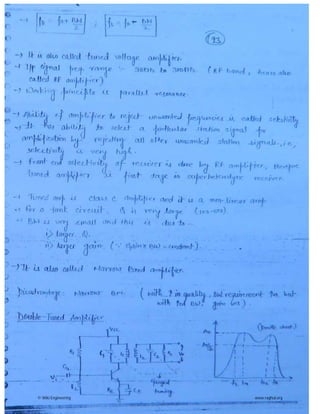 → f₁ = f₀ + BW/2 ; f₂ = f₀ + BW/2
93
→ It is also called tuned voltage amplifier.
→ I/p signal freq. range :- 30KHz to 300MHz (RF band, hence also
called RF amplifier)
→ Working principle is parallel resonance.
→ Ability of amplifier to reject unwanted frequencies is called selectivity
→ It has ability to select a particular station signal for
amplification by rejecting all other unwanted station signals, i.e.,
selectivity is very high.
→ front end selectivity of receiver is due to RF amplifier,
tuned amplifier is first stage in superheterodyne receiver.
→ Tuned amp is class C amplifier and it is a non-linear amp
→ for a tank circuit, Q is very large
→ BW is very small and this is due to -
i) larger Q.
ii) larger gain (∵ Gain x BW = constant).
→ It is also called Narrow Band amplifier.
Disadvantage: Narrow BW. (with ↑ in quality, BW requirement
with BW gain
Double-Tuned Amplifier
Vcc
R₁
R₂
tuning
f₁
f₂
© Wiki Engineering
www.raghul.org